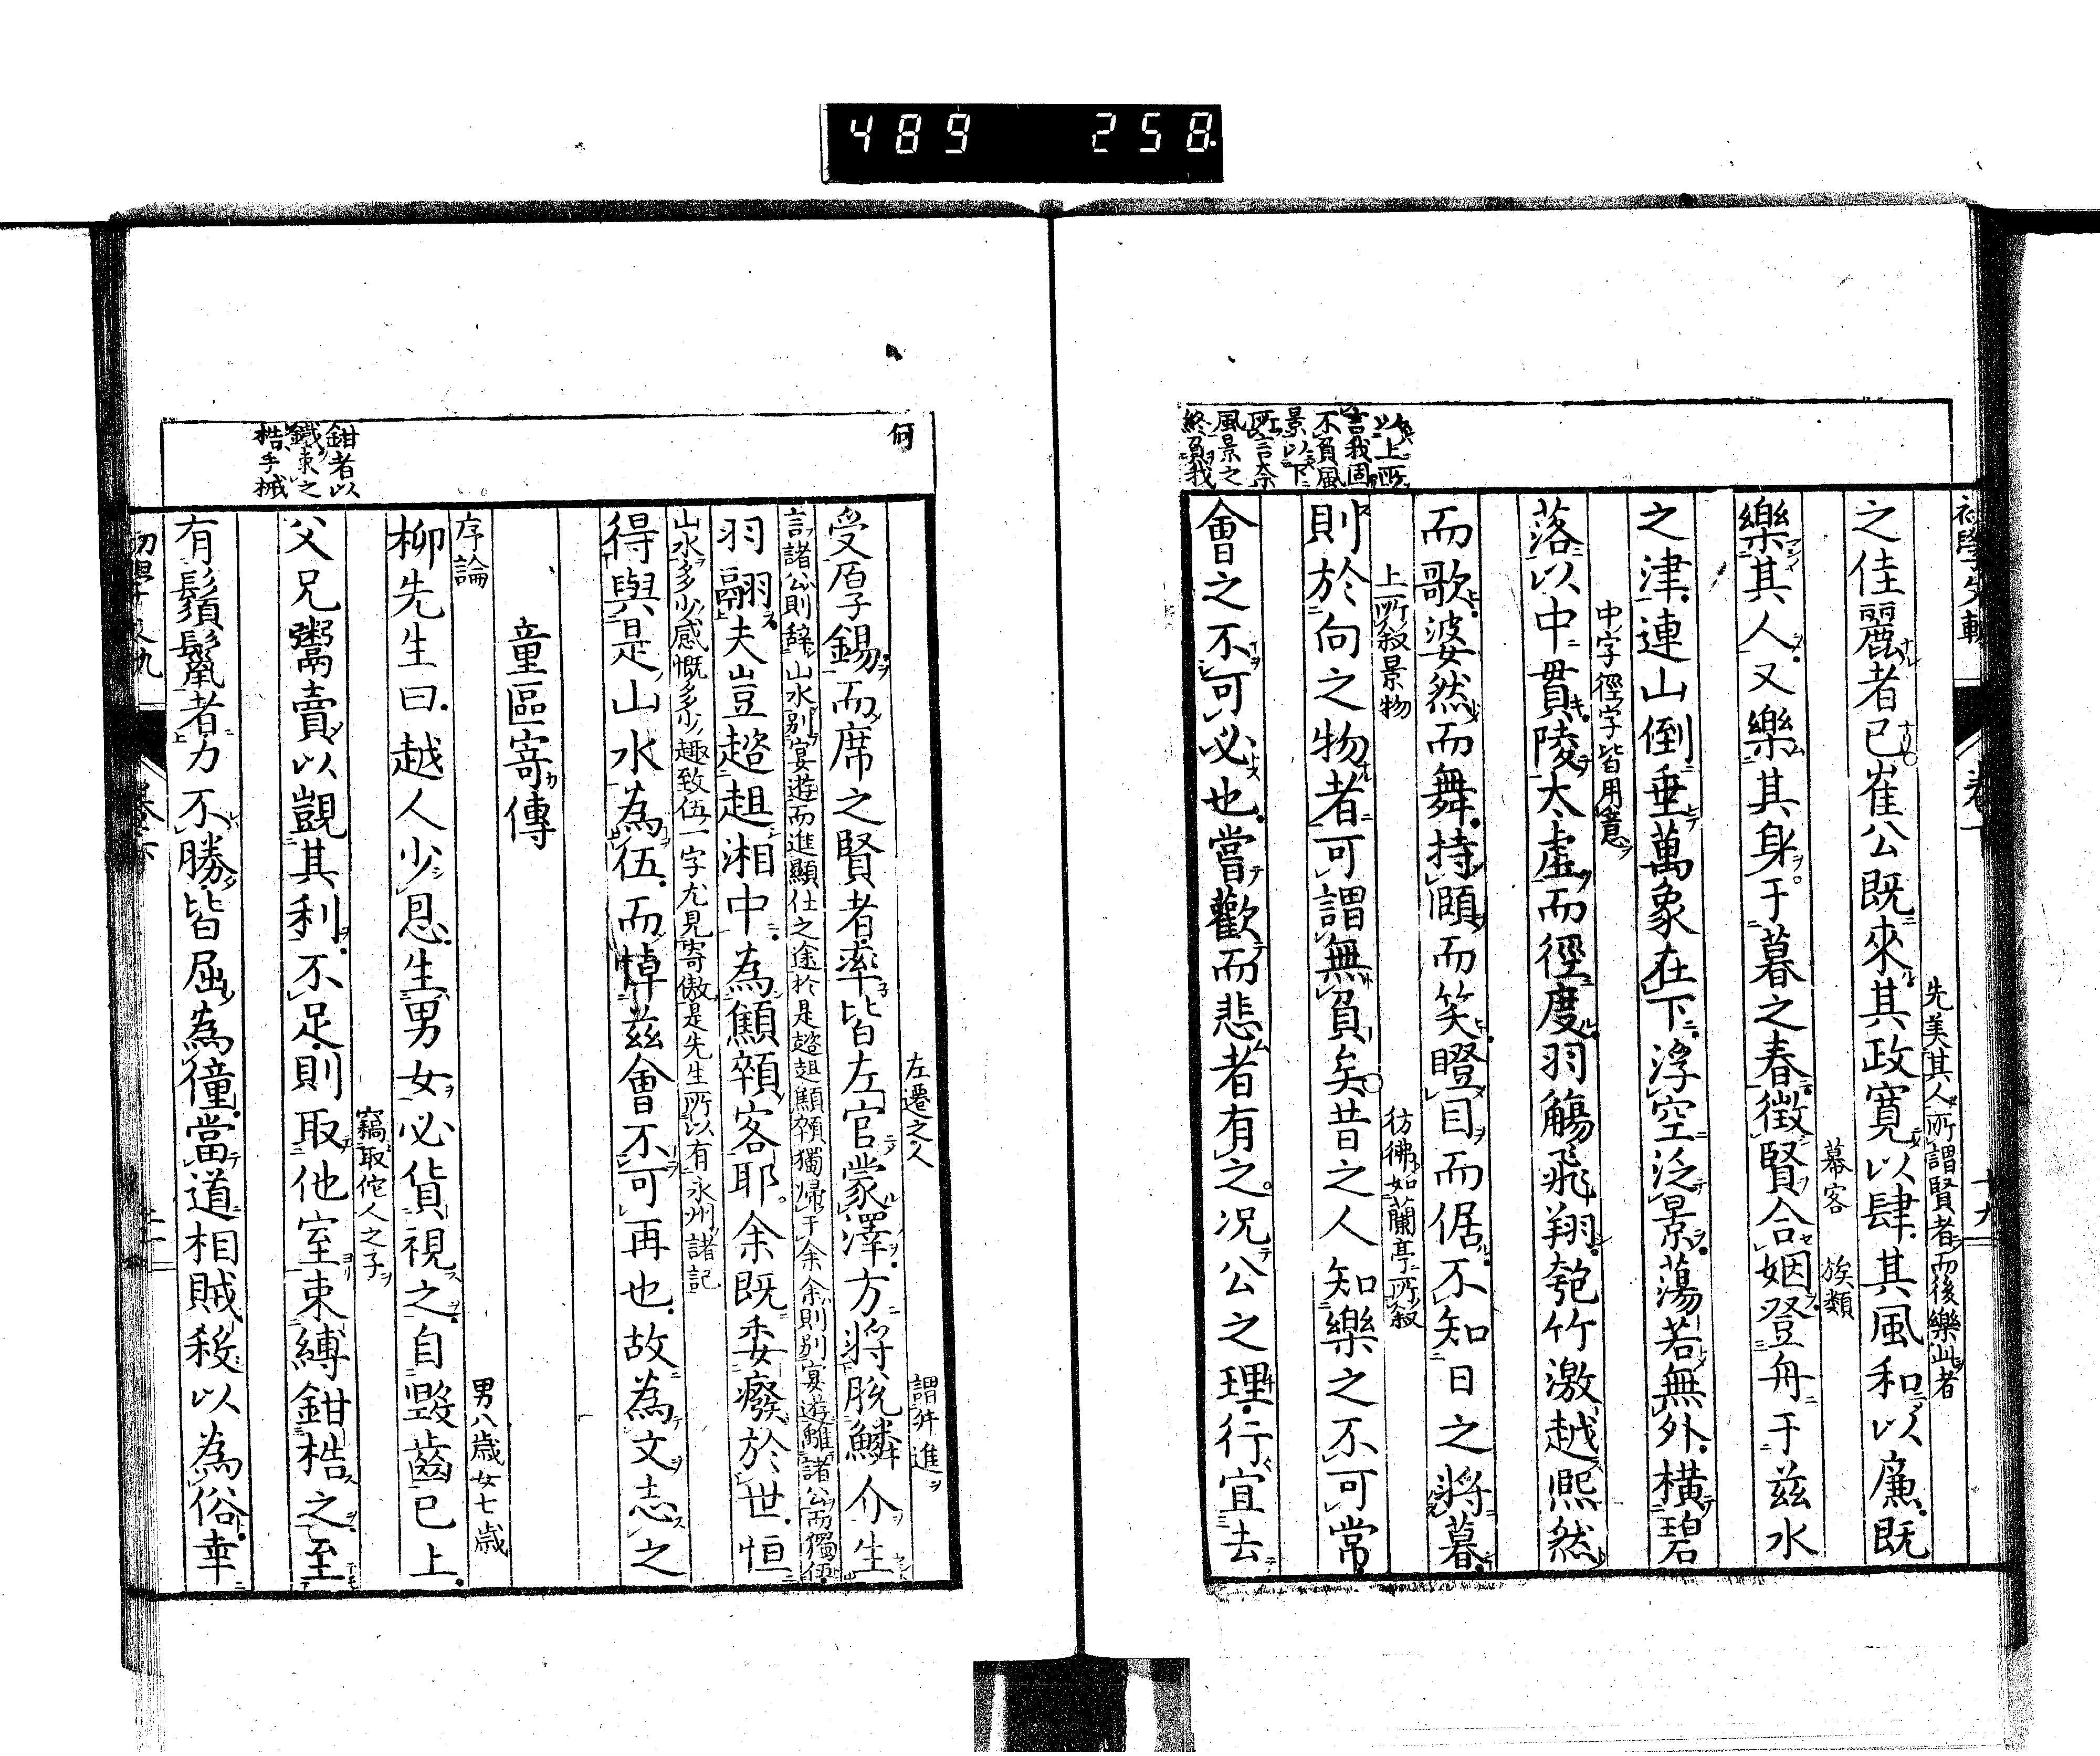 489 258
以上所
言我固
不負風
景以下
所言奈
風景之
終負我
先美其人所謂賢者而後樂此者
之佳麗者已崔公既來其政寬以肆其風和以廉既
幕客 族類
樂其人又樂其身于暮之春徵賢合姻登舟于茲水
之津連山倒垂萬象在下浮空泛景蕩若無外橫碧
中字徑字皆用意
落以中貫陵太虛而徑度羽觴飛翔匏竹激越熙然
而歌婆然而舞持頤而笑瞪目而倨不知日之將暮
上所叙景物 彷彿如蘭亭所叙
則於向之物者可謂無負矣昔之人知樂之不可常
會之不可必也當歡而悲者有之况公之理行宜去
卷下
十九
何
左遷之人 謂并進
受厚錫而席之賢者率皆左官蒙澤方將脫鱗介生
言諸公則辭山水別宴遊而進顯仕之途於是趦趄顦顇獨歸于余余則別宴遊離諸公而獨伍
羽翮夫豈趦趄湘中為顦顇客耶余既委癈於世恒
山水多少感慨多少趣致伍一字尤見寄傲是先生所以有永州諸記
得與是山水為伍而悼茲會不可再也故為文志之
童區寄傳
序論 男八歳女七歳
柳先生曰越人少恩生男女必貨視之自毀齒已上
竊取佗人之子
父兄鬻賣以覬其利不足則取他室束縛鉗梏之至
鉗者以
鐵束之
梏手械
有鬚鬣者力不勝皆屈為僮當道相賊殺以為俗幸